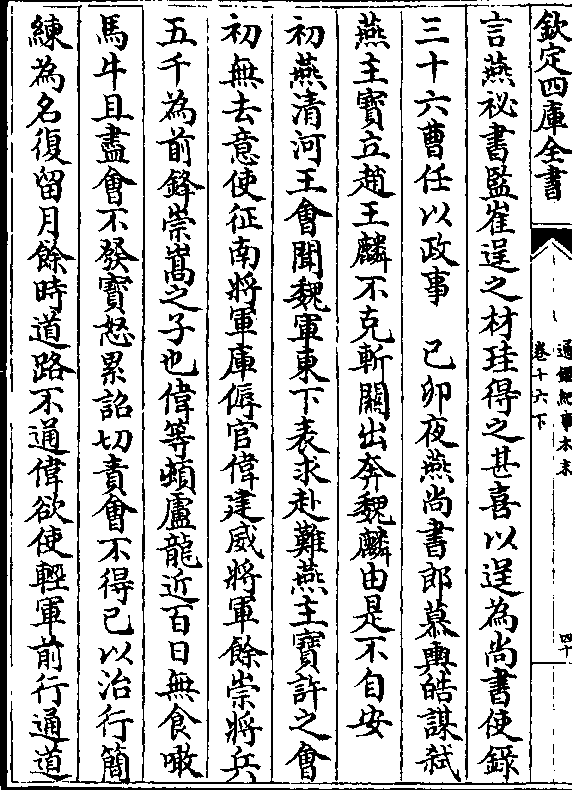 欽定四庫全書
通鑑紀事本末
卷十六下
四十
言燕祕書監崔逞之材珪得之甚喜以逞為尚書使錄
三十六曹任以政事　己卯夜燕尚書郎慕輿皓謀弑
燕主寶立趙王麟不克斬關出奔魏麟由是不自安
初燕清河王會聞魏軍東下表求赴難燕主寶許之會
初無去意使征南將軍庫傉官偉建威將軍餘崇將兵
五千為前鋒崇嵩之子也偉等頓盧龍近百日無食噉
馬牛且盡會不發寶怒累詔切責會不得已以治行簡
練為名復留月餘時道路不通偉欲使輕軍前行通道